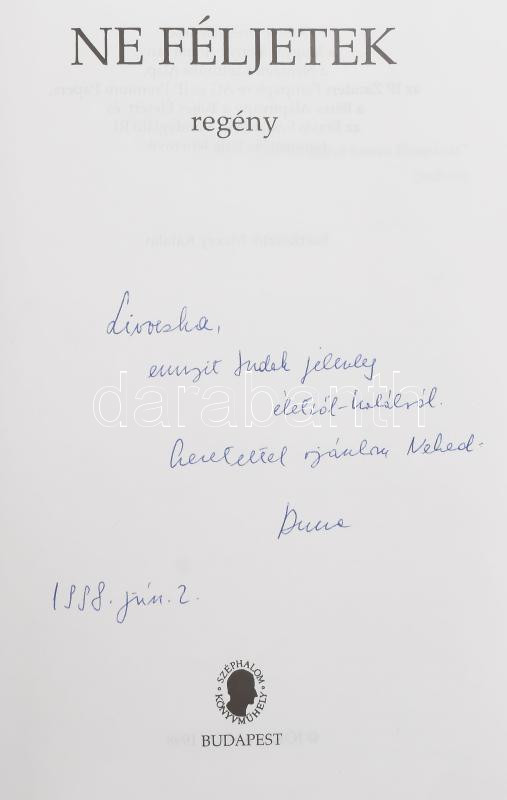 NE FÉLJETEK
regény
Livocska,
ennyit tudok jelenleg
életről-halálról.
Szeretettel ajánlom Neked-
Anna
1998. jún. 2.
darabanth
SZÉPHALOM
KÖNYVMŰHELY
BUDAPEST